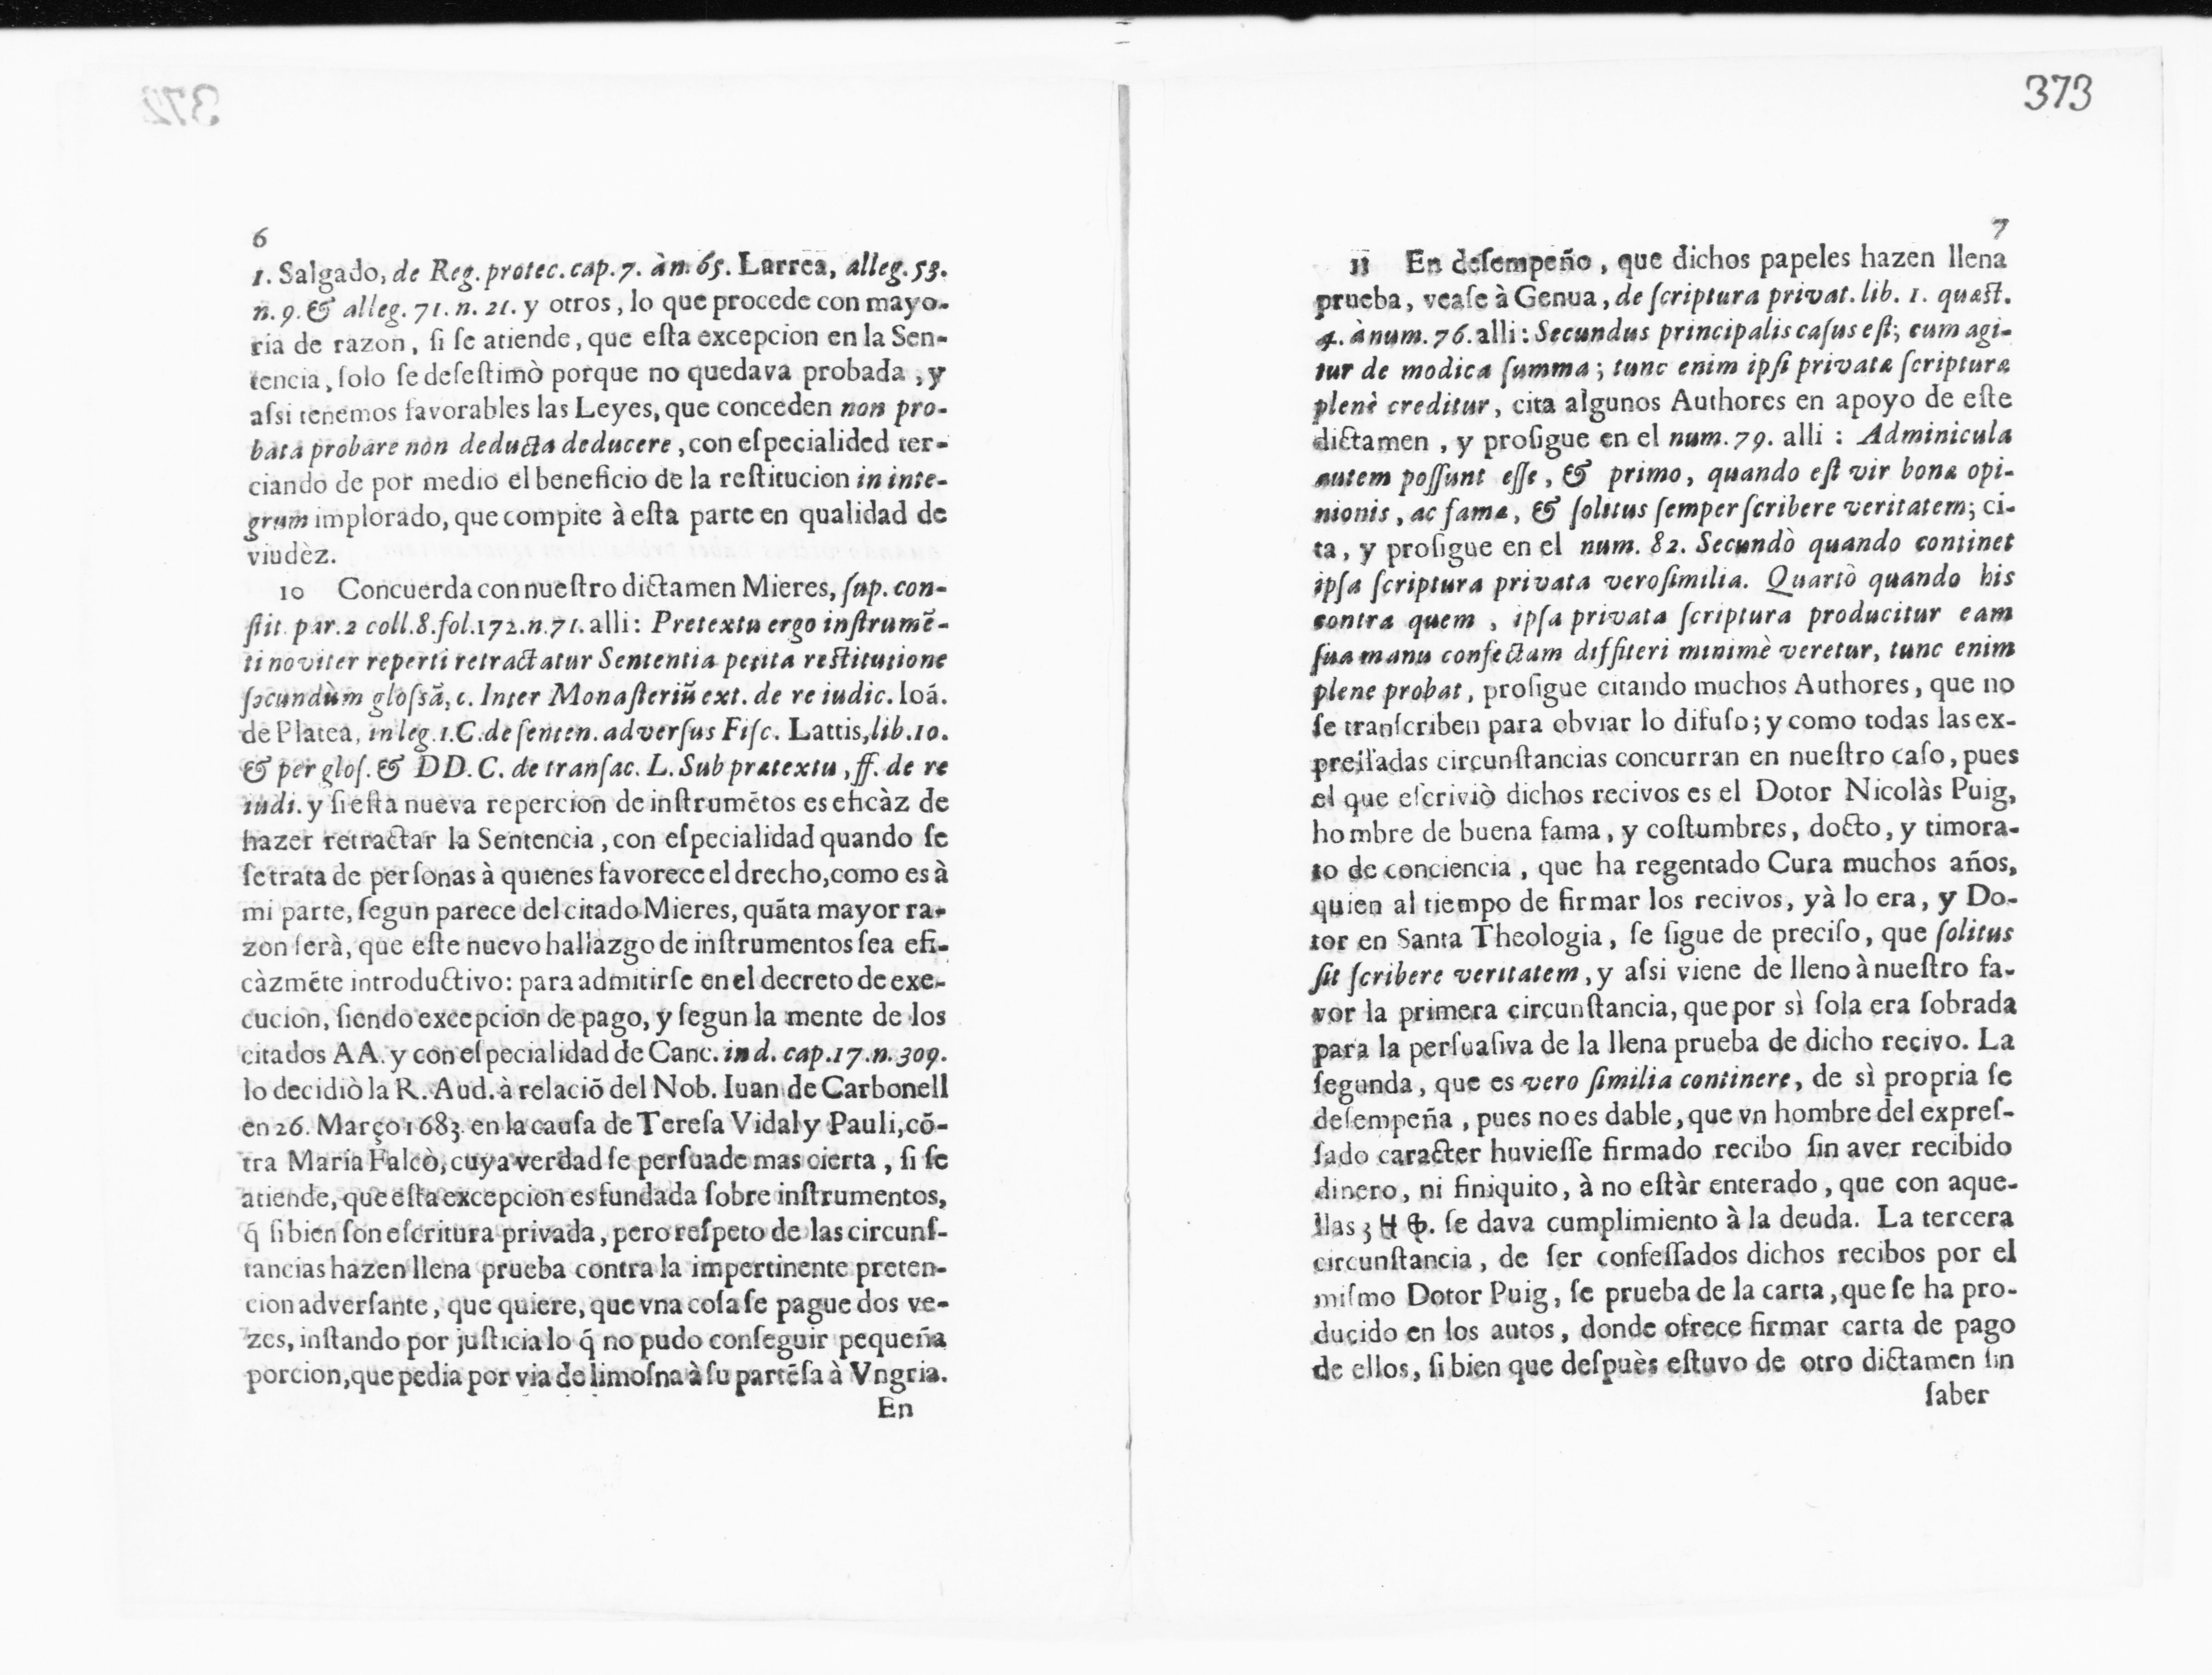 6
1. Salgado, de Reg. protec. cap. 7. àn. 65. Larrea, alleg. 53.
n. 9. & alleg. 71. n. 21. y otros, lo que procede con mayo-
ria de razon, ſi ſe atiende, que eſta excepcion en la Sen-
tencia, ſolo ſe deſeſtimò porque no quedava probada, y
aſsi tenemos favorables las Leyes, que conceden non pro-
bata probare non deducta deducere, con eſpecialided ter-
ciando de por medio el beneficio de la reſtitucion in inte-
grum implorado, que compite à eſta parte en qualidad de
viudèz.
10 Concuerda con nueſtro dictamen Mieres, ſup. con-
ſtit. par. 2 coll. 8. fol. 172. n. 71. alli: Pretextu ergo inſtrumē-
ti noviter reperti retractatur Sententia petita reſtitutione
ſecundùm gloſsā, c. Inter Monaſteriū ext. de re iudic. Ioá.
de Platea, in leg. 1. C. de ſenten. adverſus Fiſc. Lattis, lib. 10.
& per gloſ. & DD. C. de tranſac. L. Sub pratextu, ff. de re
iudi. y ſi eſta nueva repercion de inſtrumētos es eficàz de
hazer retractar la Sentencia, con eſpecialidad quando ſe
ſe trata de perſonas à quienes favorece el drecho, como es à
mi parte, ſegun parece del citado Mieres, quāta mayor ra-
zon ſerà, que eſte nuevo hallazgo de inſtrumentos ſea efi-
càzmēte introductivo: para admitirſe en el decreto de exe-
cucion, ſiendo excepcion de pago, y ſegun la mente de los
citados AA. y con eſpecialidad de Canc. in d. cap. 17. n. 309.
lo decidiò la R. Aud. à relaciō del Nob. Iuan de Carbonell
en 26. Março 1683. en la cauſa de Tereſa Vidal y Pauli, cō-
tra Maria Falcò, cuya verdad ſe perſuade mas cierta, ſi ſe
atiende, que eſta excepcion es fundada ſobre inſtrumentos,
q̄ ſi bien ſon eſcritura privada, pero reſpeto de las circunſ-
tancias hazen llena prueba contra la impertinente preten-
cion adverſante, que quiere, que vna coſa ſe pague dos ve-
zes, inſtando por juſticia lo q̄ no pudo conſeguir pequeña
porcion, que pedia por via de limoſna à ſu partēſa à Vngria.
En
373
7
11 En deſempeño, que dichos papeles hazen llena
prueba, veaſe à Genua, de ſcriptura privat. lib. 1. quæſt.
4. à num. 76. alli: Secundus principalis caſus eſt; cum agi-
tur de modica ſumma; tunc enim ipſi privatæ ſcripturæ
plenè creditur, cita algunos Authores en apoyo de eſte
dictamen, y proſigue en el num. 79. alli: Adminicula
autem poſſunt eſſe, & primo, quando eſt vir bonæ opi-
nionis, ac famæ, & ſolitus ſemper ſcribere veritatem; ci-
ta, y proſigue en el num. 82. Secundò quando continet
ipſa ſcriptura privata veroſimilia. Quartò quando his
contra quem, ipſa privata ſcriptura producitur eam
ſua manu confectam diffiteri minimè veretur, tunc enim
plene probat, proſigue citando muchos Authores, que no
ſe tranſcriben para obviar lo difuſo; y como todas las ex-
preſſadas circunſtancias concurran en nueſtro caſo, pues
el que eſcriviò dichos recivos es el Dotor Nicolàs Puig,
hombre de buena fama, y coſtumbres, docto, y timora-
to de conciencia, que ha regentado Cura muchos años,
quien al tiempo de firmar los recivos, yà lo era, y Do-
tor en Santa Theologia, ſe ſigue de preciſo, que ſolitus
ſit ſcribere veritatem, y aſsi viene de lleno à nueſtro fa-
vor la primera circunſtancia, que por sì ſola era ſobrada
para la perſuaſiva de la llena prueba de dicho recivo. La
ſegunda, que es vero ſimilia continere, de sì propria ſe
deſempeña, pues no es dable, que vn hombre del expreſ-
ſado caracter huvieſſe firmado recibo ſin aver recibido
dinero, ni finiquito, à no eſtàr enterado, que con aque-
llas 3 ſe dava cumplimiento à la deuda. La tercera
circunſtancia, de ſer confeſſados dichos recibos por el
miſmo Dotor Puig, ſe prueba de la carta, que ſe ha pro-
ducido en los autos, donde ofrece firmar carta de pago
de ellos, ſi bien que deſpuès eſtuvo de otro dictamen ſin
ſaber